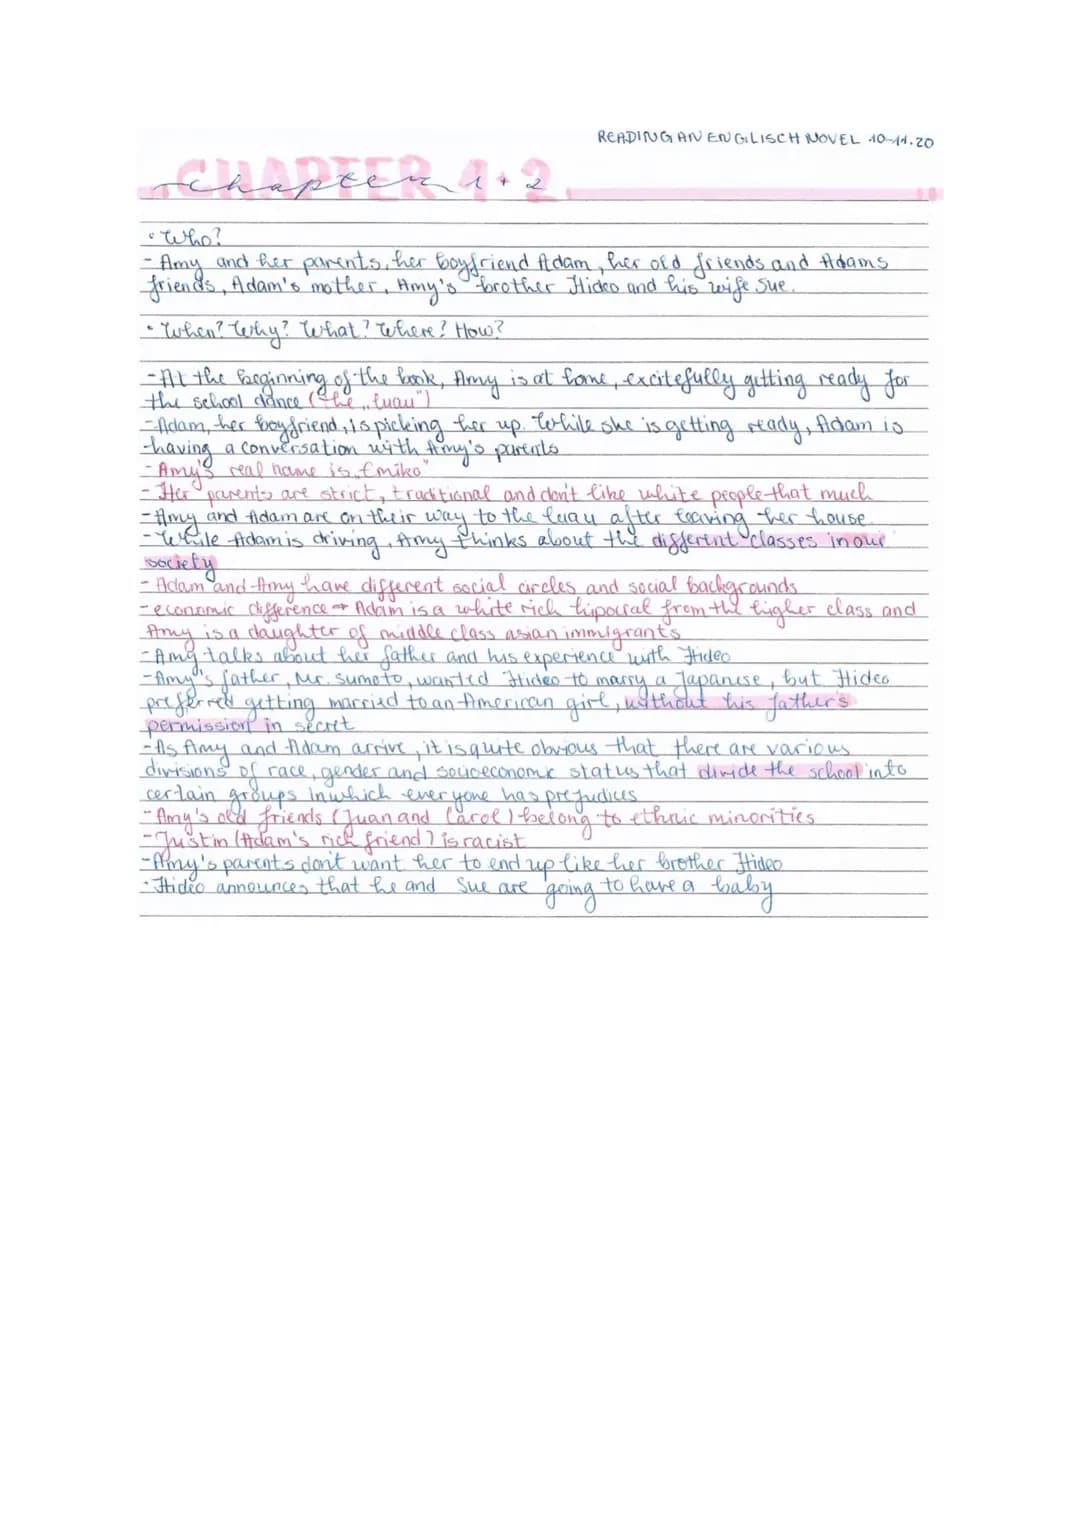 READING AN ENGLISCH NOVEL 10-11.20
CHAPTER 1+2
chapter 1 + 2
• Who?
- Amy and her parents, her boyfriend Adam, her old friends and Adams
friends, Adam's mother, Amy's brother Hideo and his wife Sue.
• When? Why? What? Where? How?
- At the beginning of the book, Amy is at home, excitefully getting ready for
the school dance (the „luau")
- Adam, her boyfriend, is picking her up. While she is getting ready, Adam is
having a conversation with Amy's parents
- Amy's real name is „Emiko"
- Her parents are strict, traditional and don't like white people that much
- Amy and Adam are on their way to the luau after leaving her house.
- While Adam is driving, Amy thinks about the different classes in our
society
- Adam and Amy have different social circles and social backgrounds
- economic difference → Adam is a white rich from the higher class and
Amy is a daughter of middle class asian immigrants
- Amy talks about her father and his experience with Hideo
- Amy's father, Mr. Sumoto, wanted Hideo to marry a Japanese, but Hideo
preferred getting married to an American girl, without his father's
permission in secret
- As Amy and Adam arrive, it is quite obvious that there are various
divisions of race, gender and socioeconomic status that divide the school into
certain groups in which everyone has prejudices
- Amy's old friends (Juan and Carol) belong to ethnic minorities
- Justin (Adam's rich friend) is racist
- Amy's parents don't want her to end up like her brother Hideo
• Hideo announces that he and Sue are going to have a baby